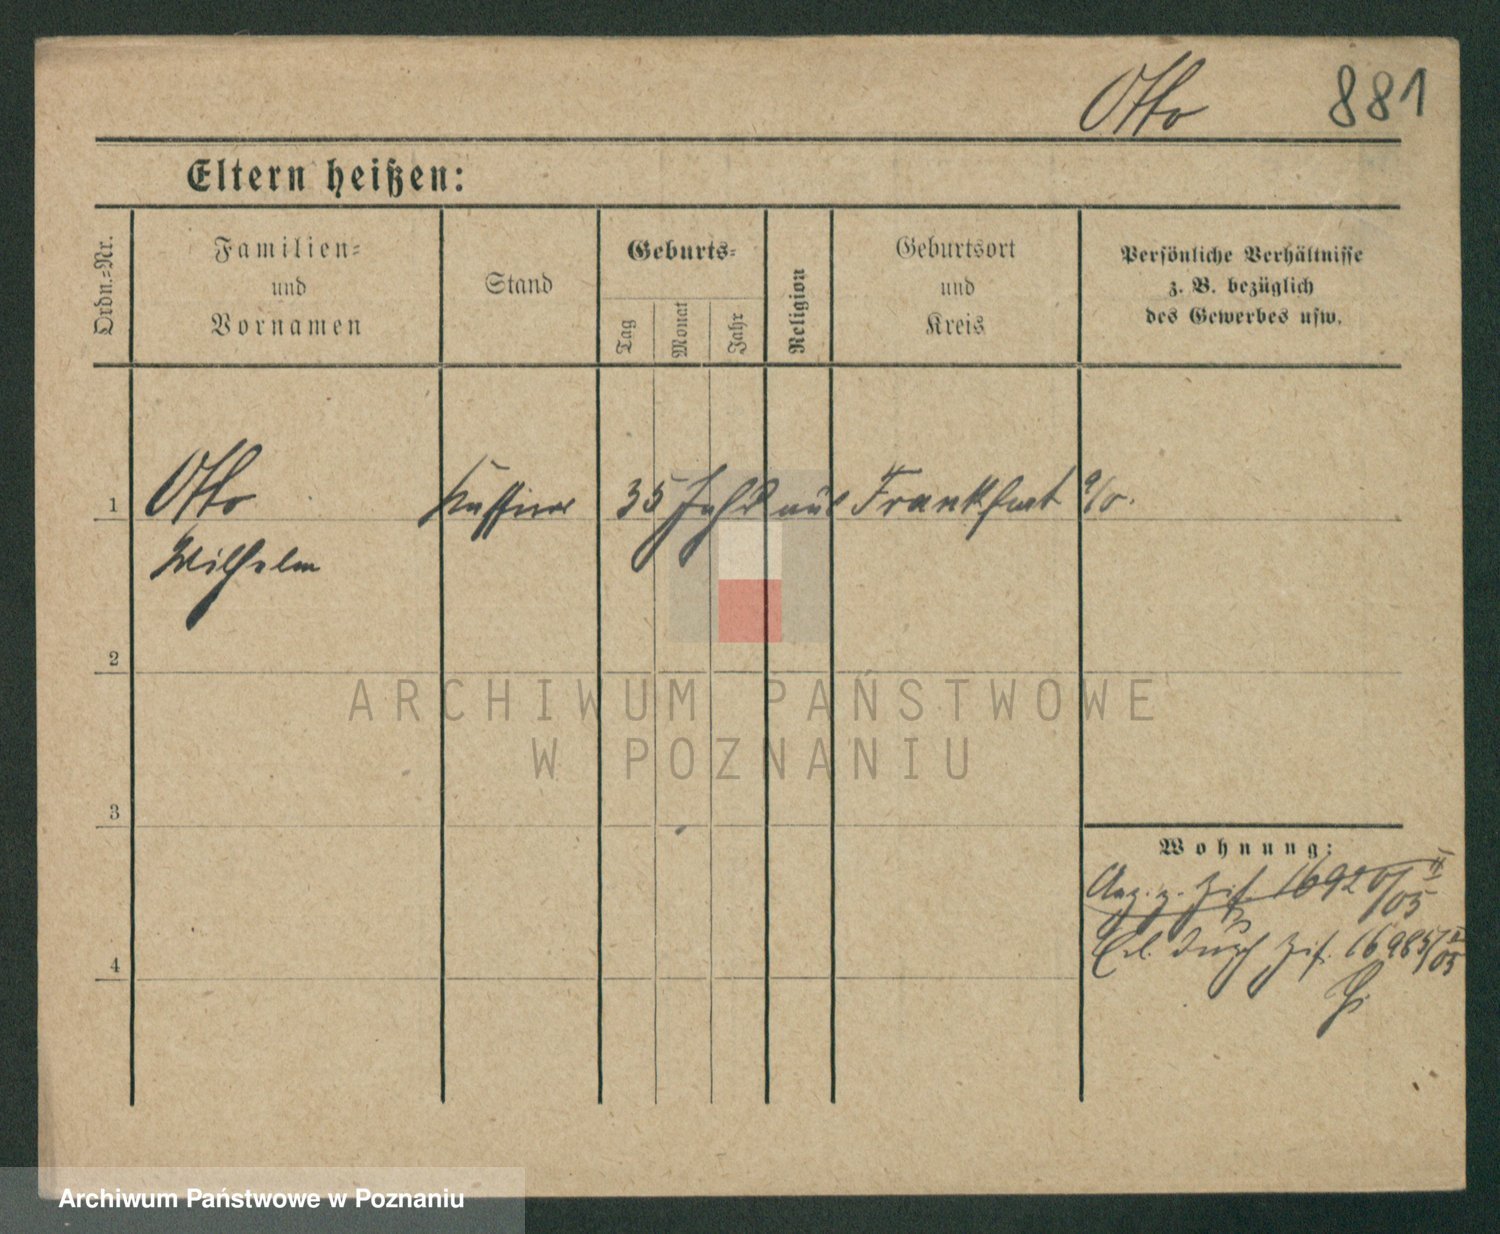 Otto 881
Eltern heißen:
Ordn.-Nr.
Familien-
und
Vornamen
Stand
Geburts-
Tag
Monat
Jahr
Religion
Geburtsort
und
Kreis
Persönliche Verhältnisse
z. B. bezüglich
des Gewerbes usw.
1 Otto 35 Jahr aus Frankfurt a/O.
Wilhelm
2
3
4
Wohnung:
16920/05 II
Erl. durch Zif. 16985/05 II
ARCHIWUM PAŃSTWOWE
W POZNANIU
Archiwum Państwowe w Poznaniu